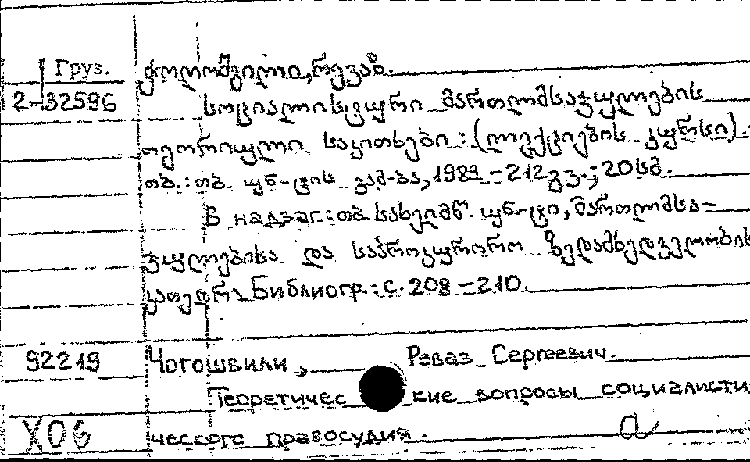 Груз.
2-32596
ჭოღოშვილი, რევაზ.
სოციალისტური მართლმსაჯულების
თეორიული საკითხები : (ლექციების კურსი). -
თბ. : თბ. უნ-ტის გამ-ბა, 1989. - 212 გვ. ; 20 სმ.
В надзаг.: თბ. სახელმწ. უნ-ტი, მართლმსა-
ჯულებისა და საპროკურორო ზედამხედველობის
კათედრა. Библиогр.: с. 208-210.
92219 Чогошвили, Реваз Сергеевич.
Теоретические вопросы социалисти-
Х06 ческого правосудия. а